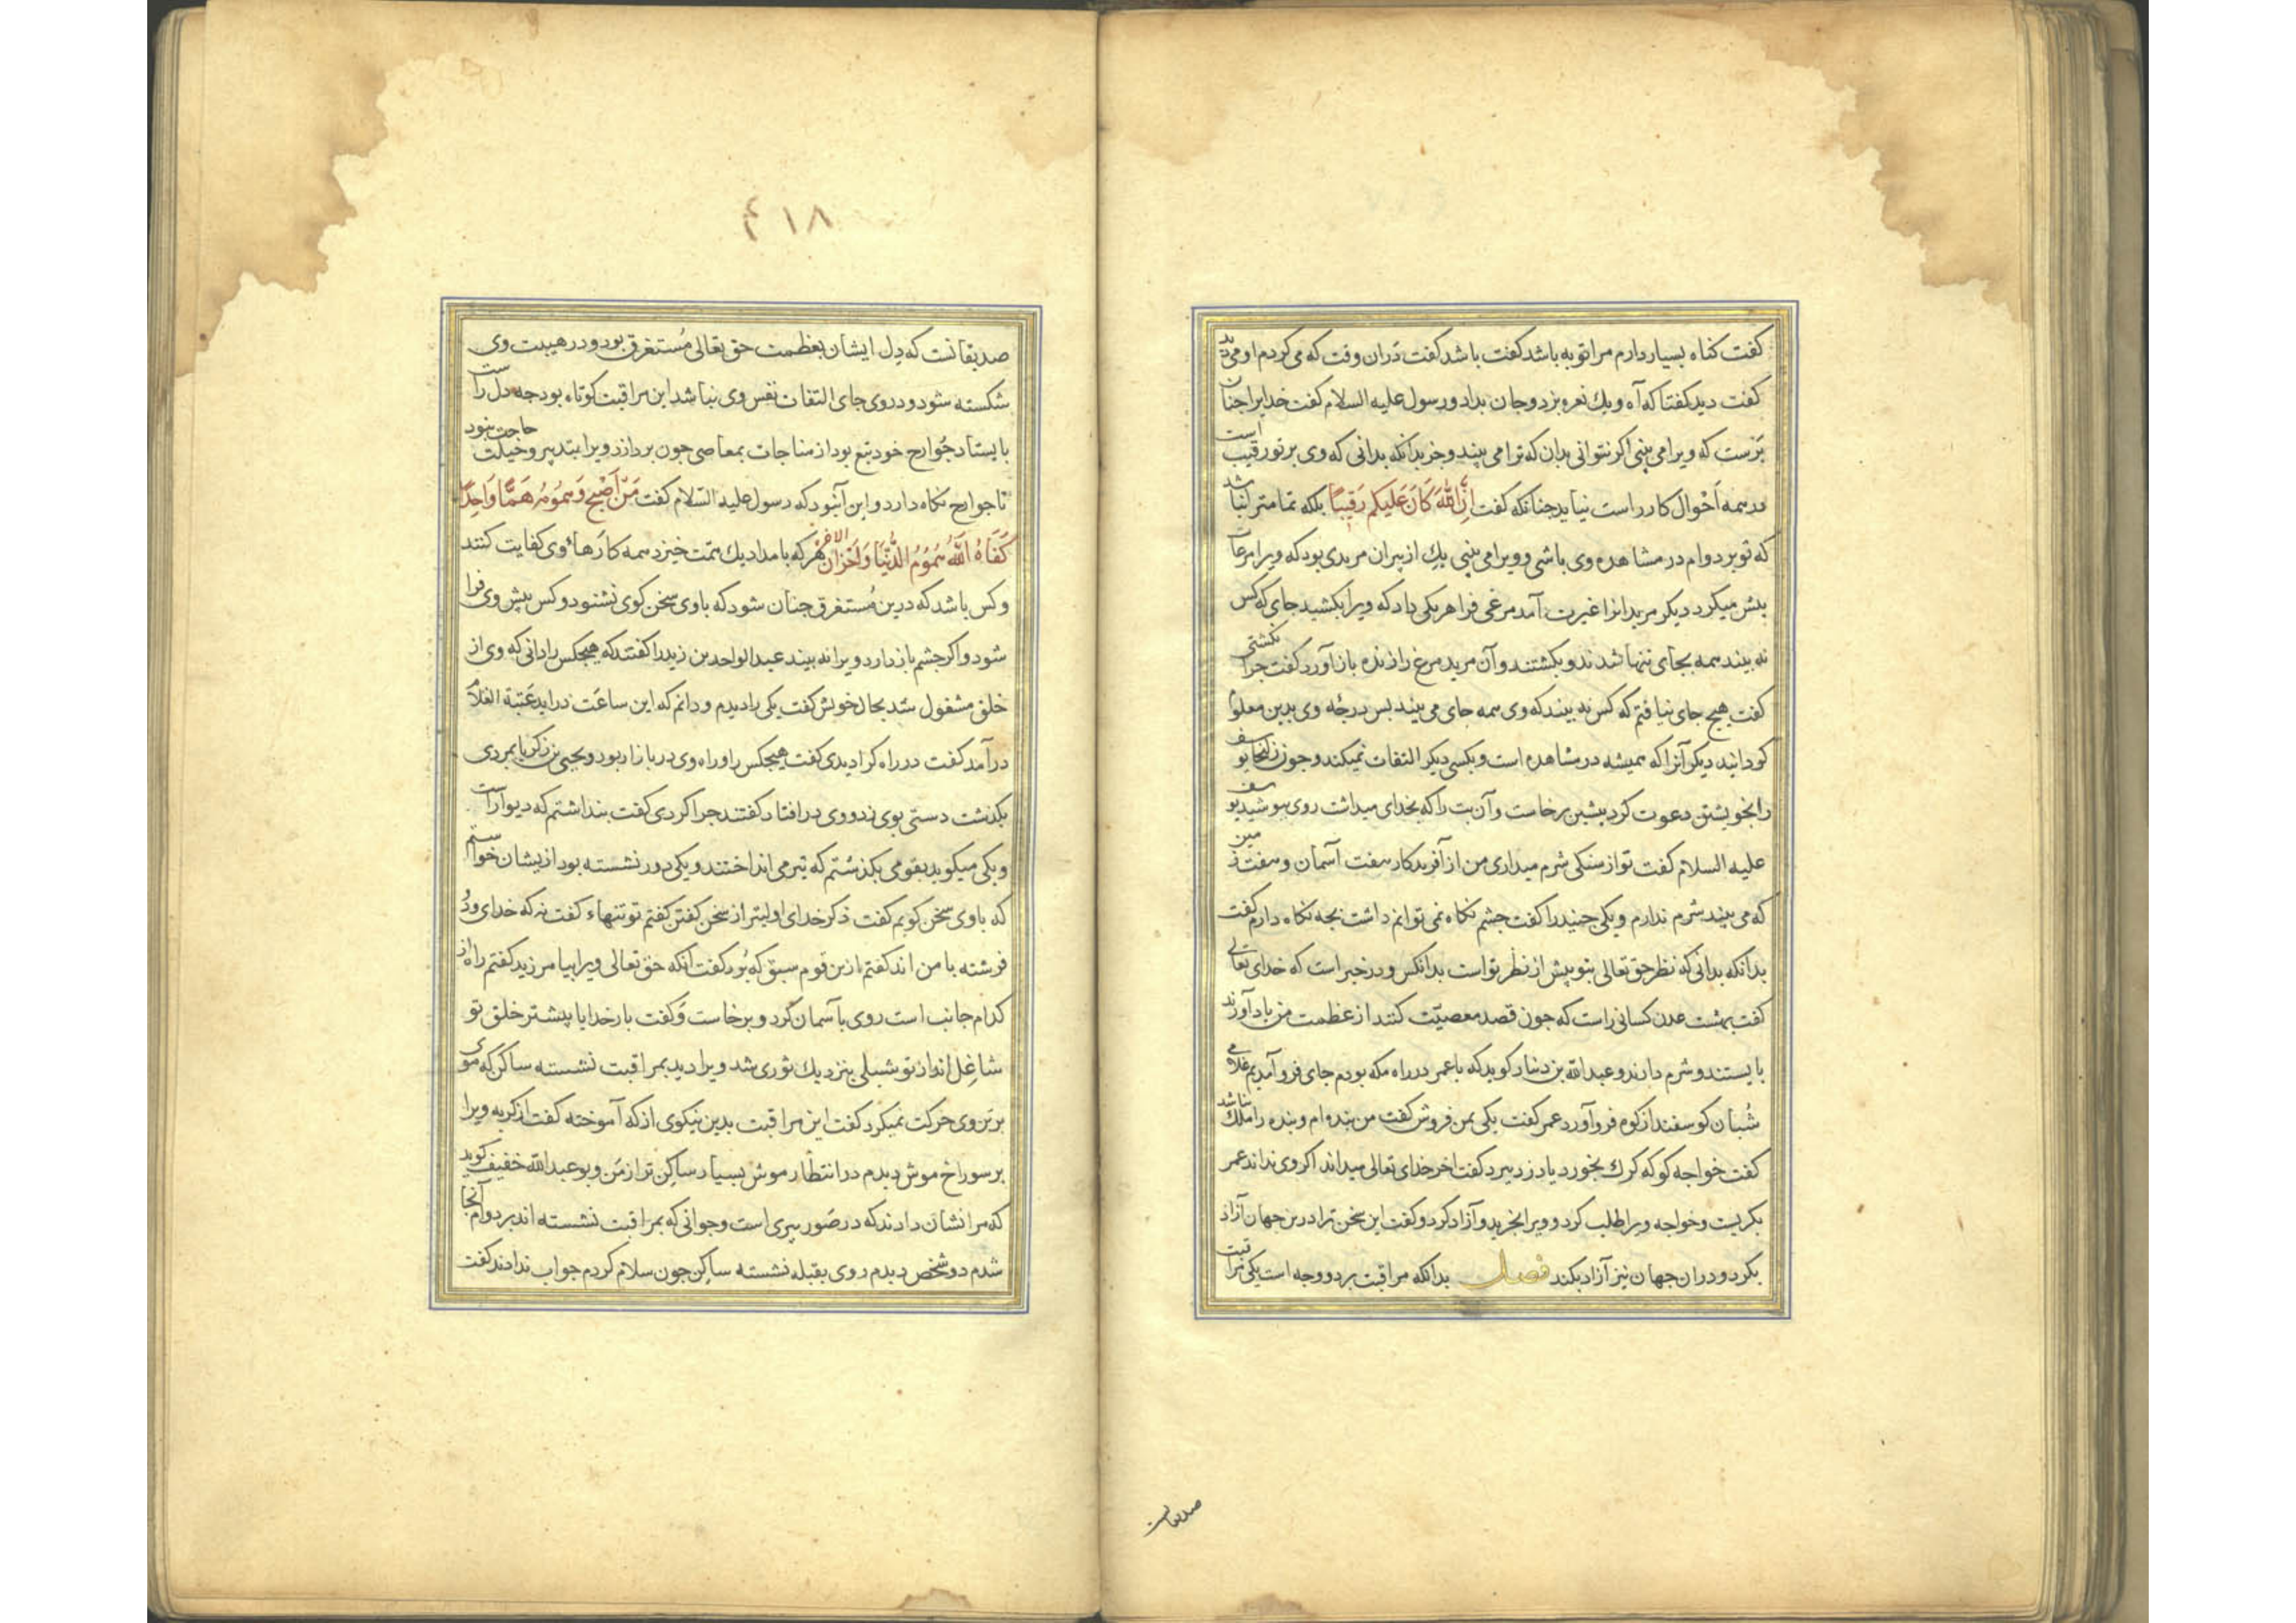 گفت گناه بسیار دارم مرا توبه باشد گفت باشد گفت دران وقت که می کردم او می دید
گفت دید گفتا که آه و یك نعره بزد و جان بداد و رسول علیه السلام گفت خدایرا چنان
پرست که ویرا می بینی اگر نتوانی بدان که ترا می بیند و جز بدانکه بدانی که وی بر تو رقیب است
در همه اَحْوال کار راست نیاید چنانکه گفت اِنَّ اللّٰهَ کَانَ عَلَیکُم رَقِیبًا بلکه تمامتر آن باشد
که تو بر دوام در مشاهده وی باشی و ویرا می بینی یکی از پیران مریدی بود که ویرا مرعات
بیش میکرد دیگر مریدانرا غیرت آمد مرغی فرا هر یکی داد که ویرا بکشید جای که کس
نه بیند همه بجای تنها شدند و بکشتند و آن مرید مرغ را زنده باز آورد گفت چرا نکشتی
گفت هیچ جای نیافتم که کس نه بیند که وی همه جای می بیند پس درجهٔ وی بدین معلوم
گردانید دیگر آنرا که همیشه در مشاهده است و بکسی دیگر التفات نمیکند و چون زلیخا یوسف
را بخویشتن دعوت کرد پیشین برخاست و آن بت را که بخدای میداشت روی بپوشید یوسف
علیه السلام گفت تو از سنکی شرم میداری من از آفریدکار هفت آسمان و هفت زمین
که می بیند شرم ندارم و یکی جنید را گفت چشم نکاه نمی توانم داشت بچه نکاه دارم گفت
بدانکه بدانی که نظر حق تعالی بتو پیش از نظر تو است بدانکس و در خبر است که خدای تعالی
گفت بهشت عدن کسانی راست که چون قصد معصیّت کنند از عظمت من یاد آورند
بایستند و شرم دارند و عبدالله بن دینار کوید که با عمر در راه مکه بودم جای فرو آمدیم غلامی
شُبان کوسفند از کوه فرو آورد عمر گفت یکی بمن فروش گفت من بنده ام و بنده را ملك نباشد
گفت خواجه کو که کرك بخورد یا دزد ببرد گفت اخر خدای تعالی میداند اکر وی نداند عمر
بکریست و خواجه ویرا طلب کرد و ویرا بخرید و آزاد کرد و گفت این سخن ترا درین جهان آزاد
بکرد و دران جهان نیز آزاد بکند فصل بدانکه مراقبت بر دو وجه است یکی مراقبت
صدیقانست
۴۱۸
صدیقانست که دِل ایشان بعظمت حق تعالی مُستغرق بود و در هیبت وی
شکسته شود و در وی جای التفات نفس وی نباشد این مراقبت کوتاه بود چه دل راست
بایستاد جوارح خود تبع بود از مناجات بمعاصی چون پردازد ویرا بتدبیر و حیلت حاجت نبود
تا جوارح نکاه دارد و این آنبود که رسول علیه السّلام گفت مَنْ اَصْبَحَ وَ هُمُومُهُ هَمًّا وَاحِدًا
کَفَاهُ اللّٰهُ هُمُوُمَ الدُّنْیَا وَ اَحْزَانَ الاخرة هر که بامداد یك همّت خیزد همه کارهاءِ وی کفایت کنند
و کس باشد که درین مُستغرق چنان شود که با وی سخن کوی نشنود و کس پیش وی فرا
شود و اگر چشم باز دارد ویرا نه بیند عبدالواحد بن زید را کفتند که هیچکس را دانی که وی از
خلق مشغول شد بحال خویش گفت یکی را دیدم و دانم که این ساعَت دراید عَتبة الغلام
درآمد گفت در راه کرا دیدی گفت هیچکس را و راه وی در بازار بود و یحیی بن زکریا بمردی
بکذشت دستی بوی زد و وی درافتاد کفتند چرا کردی گفت پنداشتم که دیوار است
و یکی میکوید بقومی بکذشتم که تیر می انداختند و یکی دور نشسته بود ازیشان خواستم
که با وی سخن کویم گفت ذکر خدای اولیتر از سخن کفتن کفتم تو تنهاء گفت نه که خدای و دو
فرشته با من اند کفتم ازین قوم سبق که بُرد گفت آنکه حق تعالی ویرا بیامرزید کفتم راه از
کدام جانب است روی بآسمان کرد و برخاست و گفت بار خدایا پیشتر خلق تو
شاغِل اند از تو شبلی بنزدیك ثوری شد ویرا دید بمراقبت نشسته ساکن که موی
بر تن وی حرکت نمیکرد گفت این مراقبت بدین نیکوی از که آموخته گفت از کربه ویرا
بر سوراخ موش دیدم در انتظار موش بسیار ساکن تر از من و بو عبدالله خفیف کوید
که مرا نشان دادند که در صُور پیری است و جوانی که بمراقبت نشسته اند بر دوام آنجا
شدم دو شخص دیدم روی بقبله نشسته ساکن چون سلام کردم جواب ندادند گفت